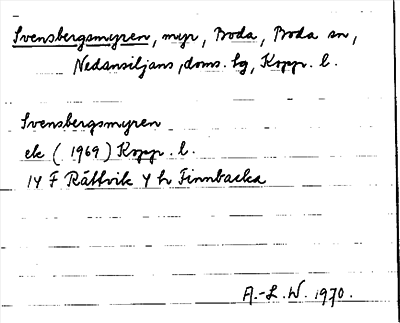 Svensbergsmyren, myr, Boda, Boda sn,
Nedansiljans, doms. hg, Kopp. l.
Svensbergsmyren
ek (1969) Kopp. l.
14 F Rättvik 4 h Finnbacka
A.-L. W. 1970.